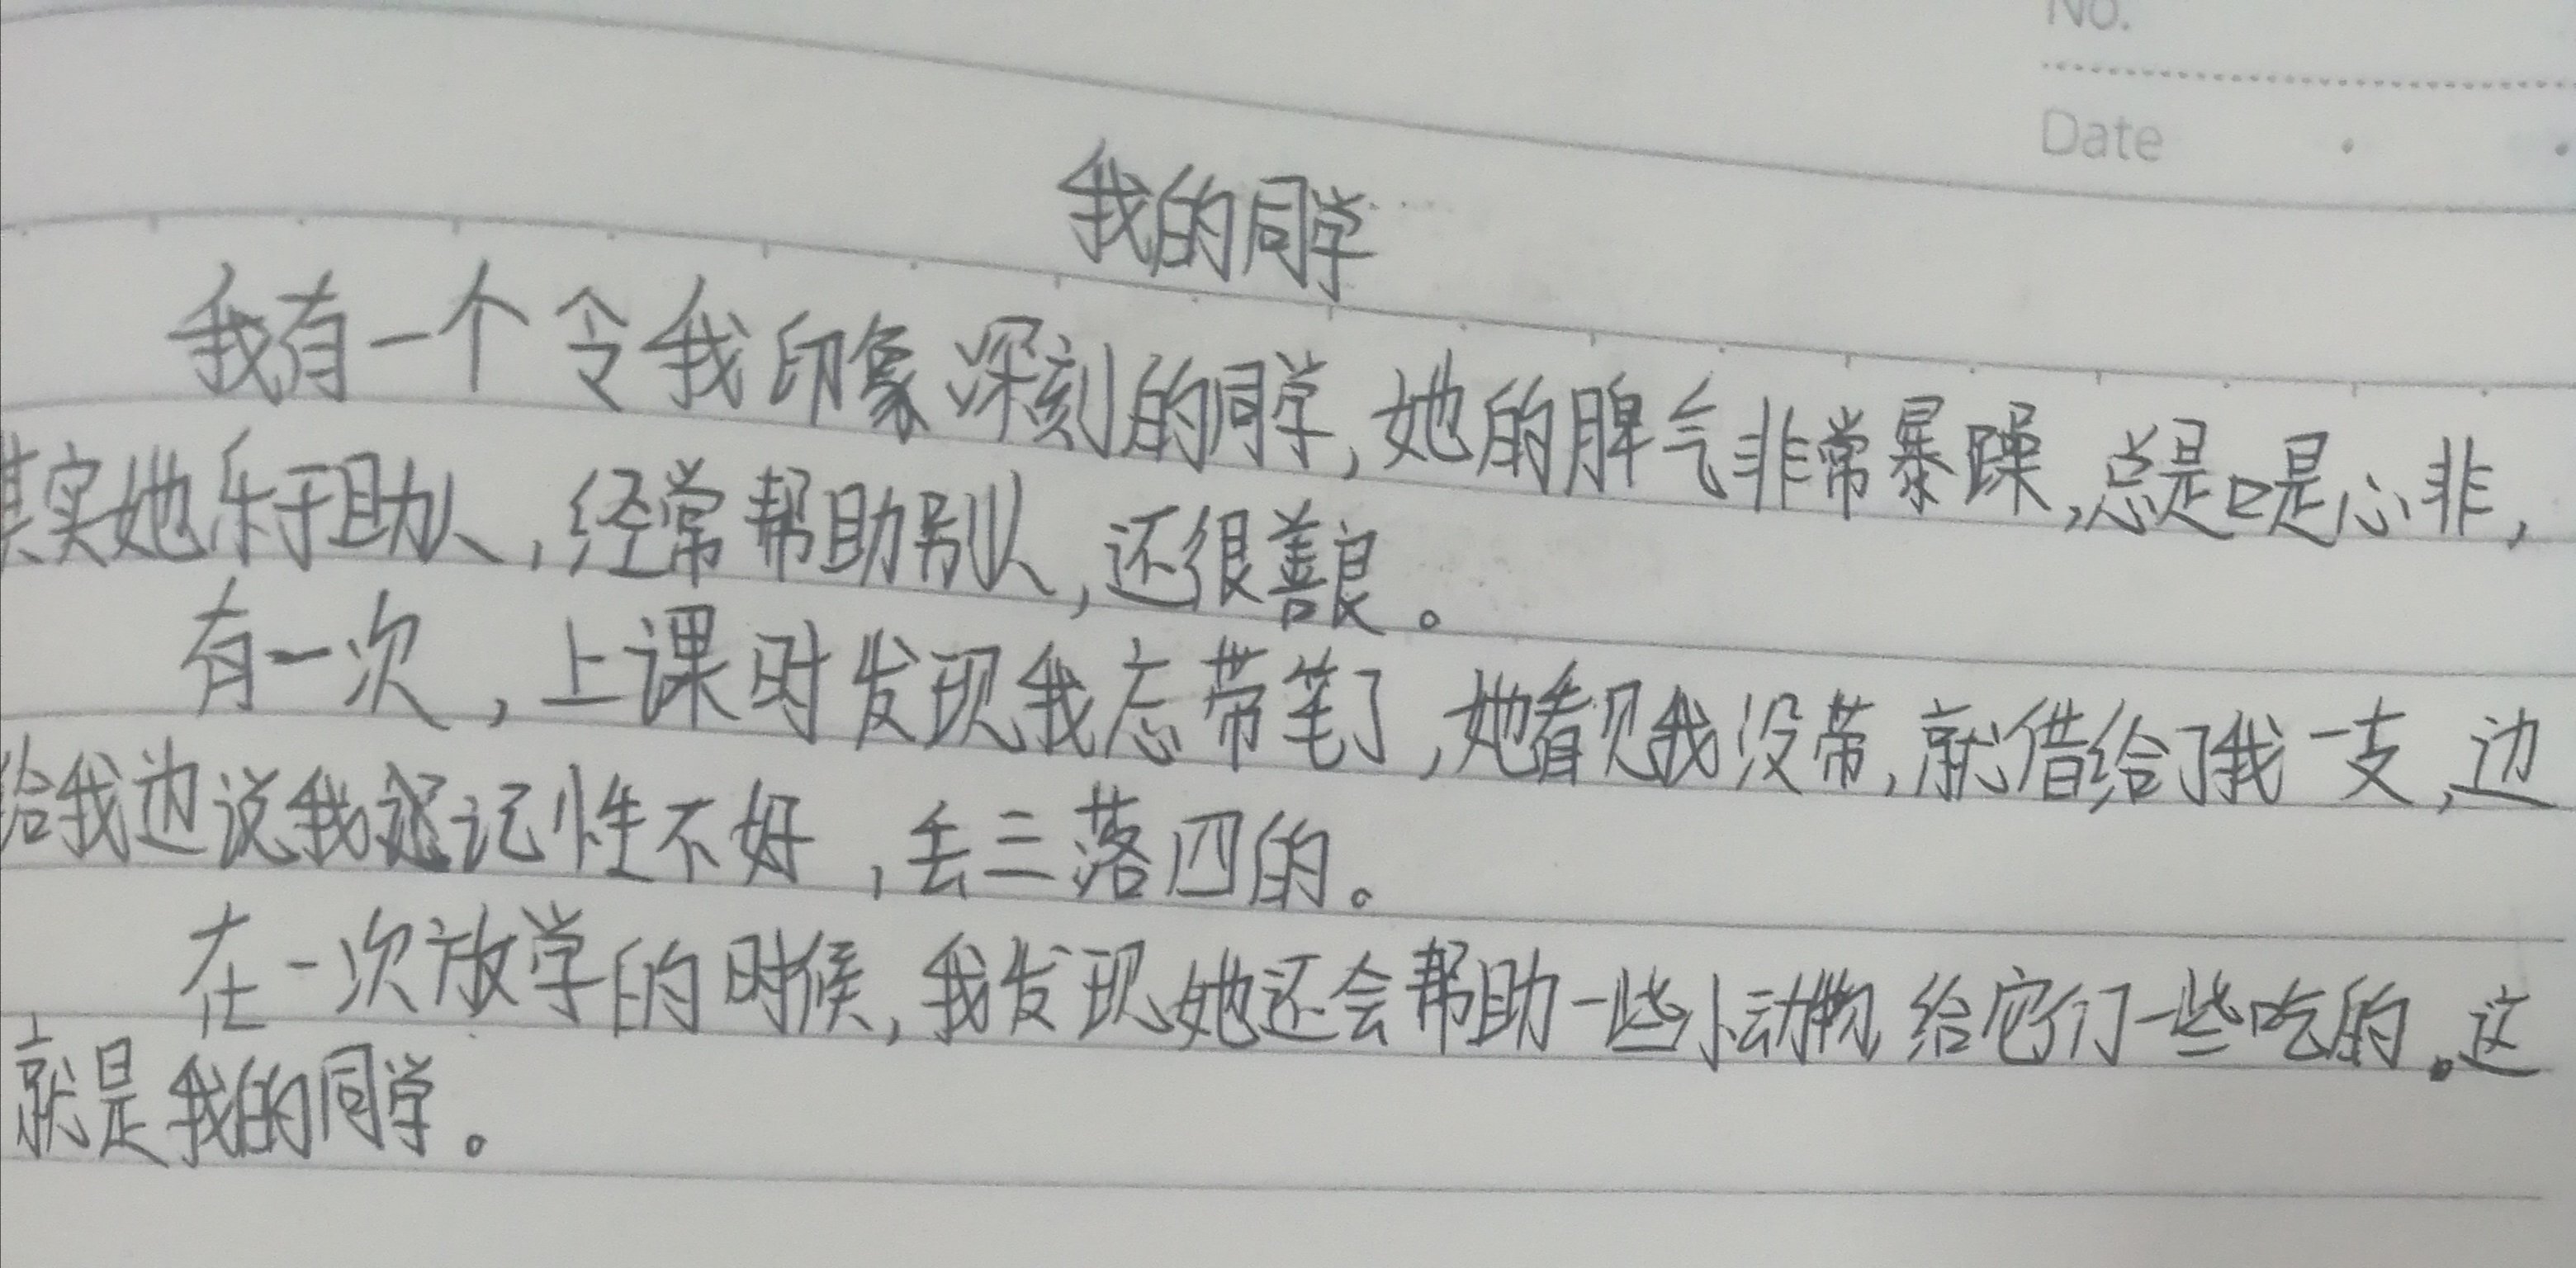 No.
Date
我的同学
我有一个令我印象深刻的同学,她的脾气非常暴躁,总是口是心非,
其实她乐于助人,经常帮助别人,还很善良。
有一次,上课时发现我忘带笔了,她看见我没带,就借给了我一支,边
给我边说我记性不好,丢三落四的。
在一次放学的时候,我发现她还会帮助一些小动物 给它们一些吃的。这
就是我的同学。